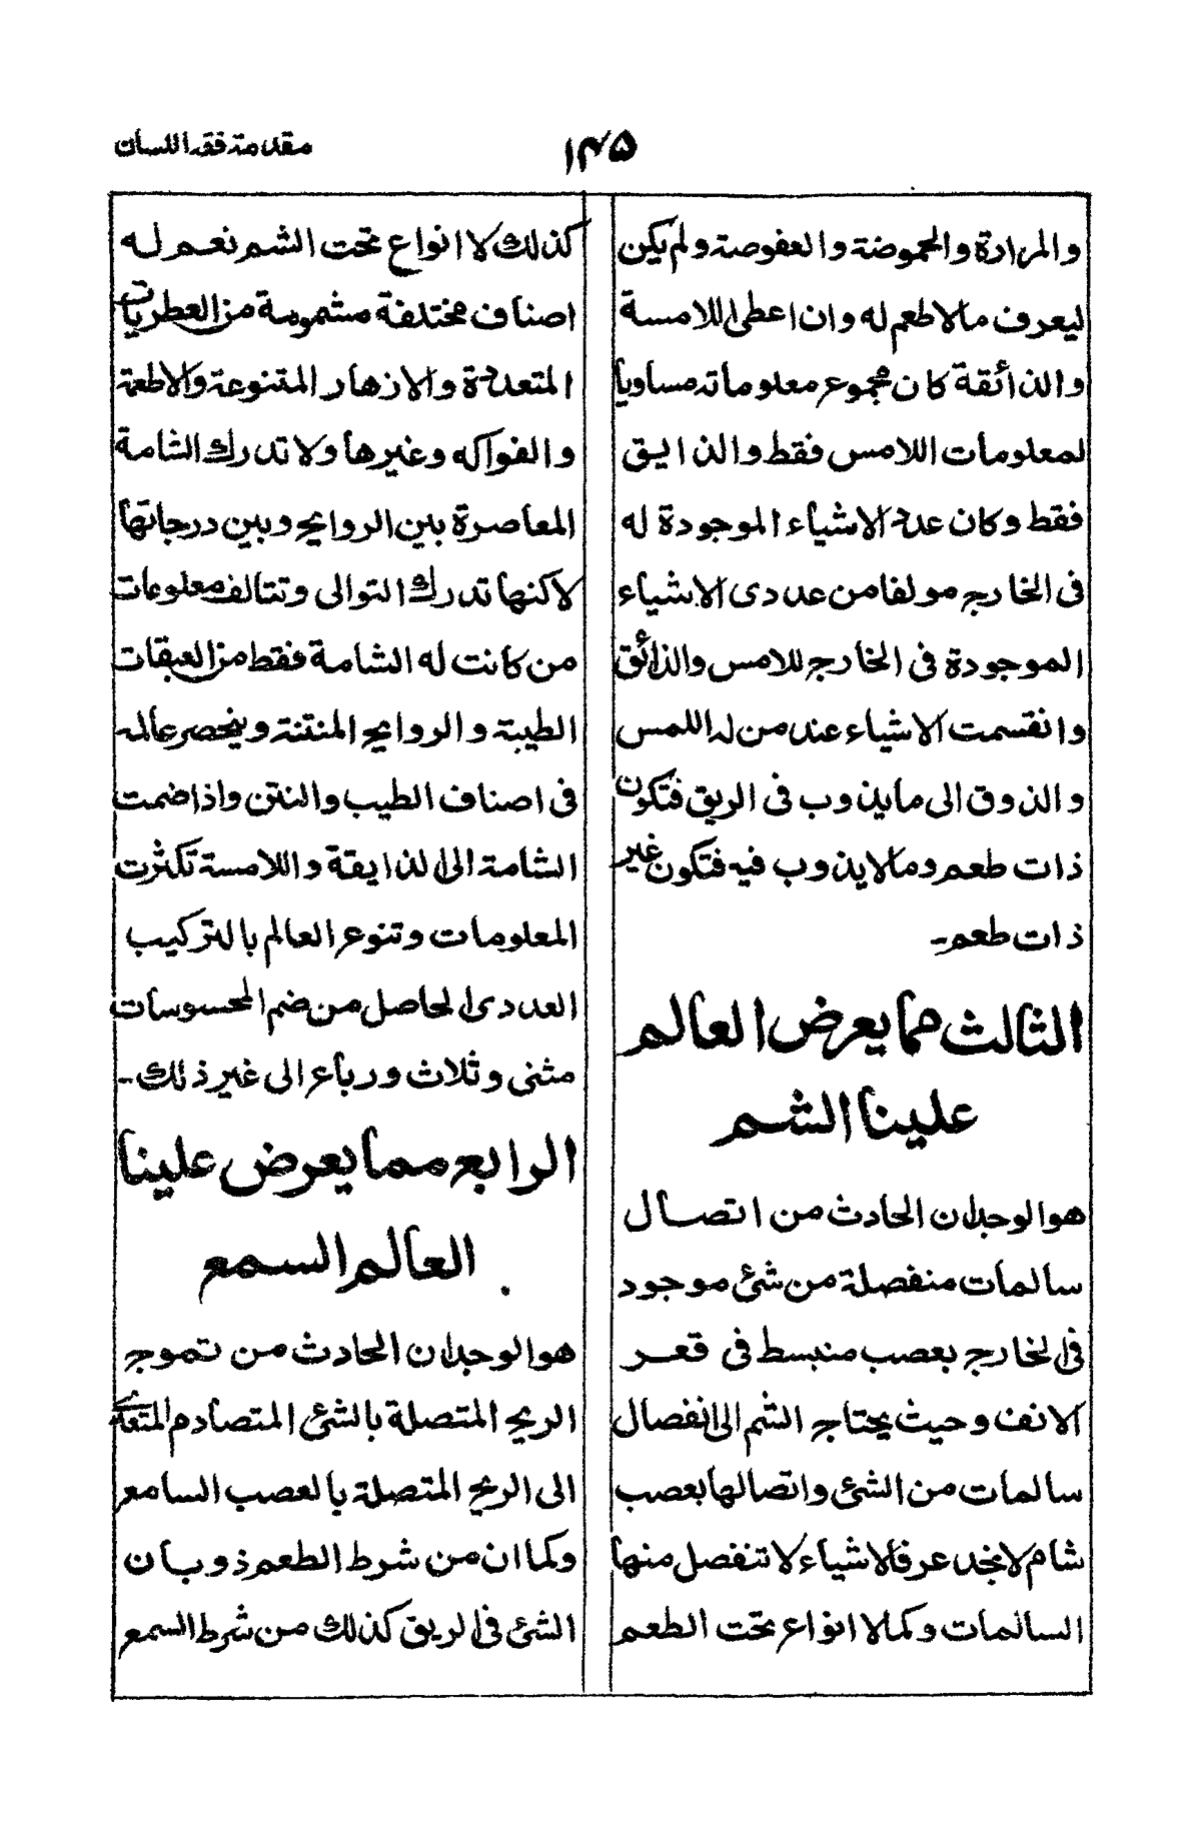 مقدمة فقه اللسان
١٣٥
والمرارة والحموضة والعفوصة ولم يكن
ليعرف مالا طعم له وان اعطى اللامسة
والذائقة كان مجموع معلوماته مساويا
لمعلومات اللامس فقط والذايق
فقط وكان عدد الاشياء الموجودة له
فى الخارج مولفا من عددى الاشياء
الموجودة فى الخارج للامس والذائق
وانقسمت الاشياء عند من له اللمس
والذوق الى مايذوب فى الريق فتكون
ذات طعم ومالا يذوب فيه فتكون غير
ذات طعم۔
الثالث مما يعرض العالم
علينا الشم
هوالوجدان الحادث من اتصال
سالمات منفصلة من شئ موجود
فى الخارج بعصب منبسط فى قعر
الانف وحيث يحتاج الشم الى انفصال
سالمات من الشئ واتصالها بعصب
شام لانجد عرفا لاشياء لا تنفصل منها
السالمات وكما لا انواع تحت الطعم
كذلك لا انواع تحت الشم نعم له
اصناف مختلفة مشمومة من العطريات
المتعددة والازهار المتنوعة والاطعة
والفواكه وغيرها ولا تدرك الشامة
المعاصرة بين الروايح وبين درجاتها
لاكنها تدرك التوالى وتتالف معلومات
من كانت له الشامة فقط من العبقات
الطيبة والروايح المنتنة وينحصر عالمه
فى اصناف الطيب والنتن واذا ضمت
الشامة الى الذايقة واللامسة تكثرت
المعلومات وتنوع العالم بالتركيب
العددى الحاصل من ضم المحسوسات
مثنى وثلاث ورباع الى غير ذلك۔
الرابع مما يعرض علينا
العالم السمع
هوالوجدان الحادث من تموج
الريح المتصلة بالشئ المتصادم
الى الريح المتصلة بالعصب السامع
وكما ان من شرط الطعم ذوبان
الشئ فى الريق كذلك من شرط السمع